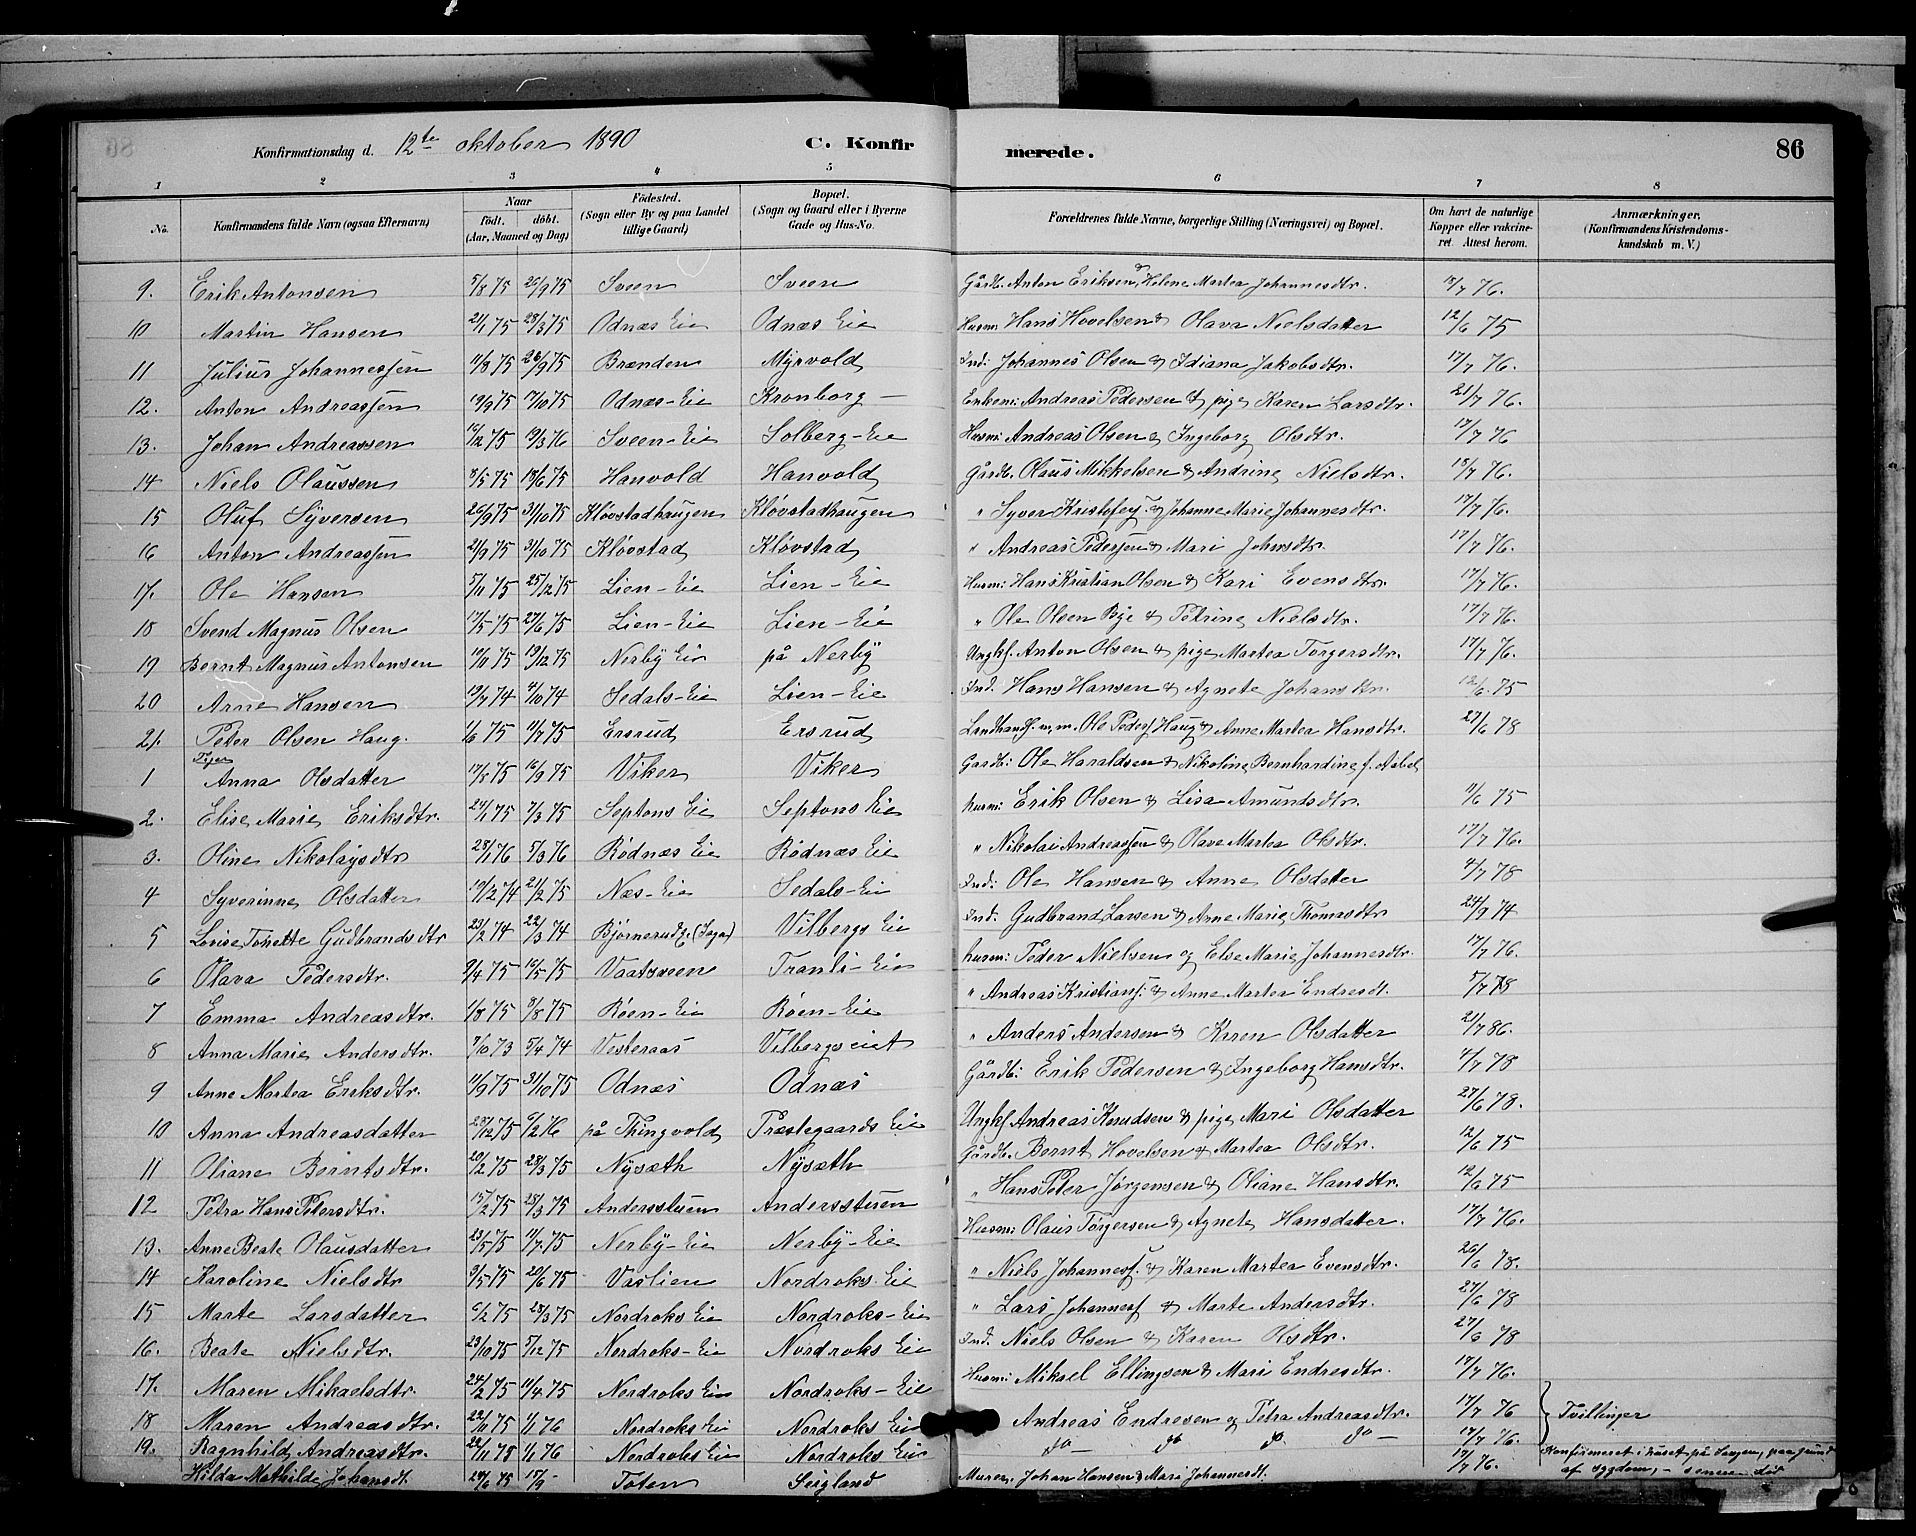 Konfirmationsdag d. 12te oktober 1890 C. Konfirmerede. 86
1 2 3 4 5 6 7 8
No. Konfirmandens fulde Navn (ogsaa Efternavn) Naar födt. döbt. (Aar, Maaned og Dag) Födested. (Sogn eller By og paa Landet tillige Gaard) Bopæl. (Sogn og Gaard eller i Byerne Gade og Hus-No. Forældrenes fulde Navne, borgerlige Stilling (Næringsvei) og Bopæl. Om havt de naturlige Kopper eller vakcineret. Attest herom. Anmærkninger. (Konfirmandens Kristendomskundskab m. V.)
9. Erik Antonsen 5/8 75 26/9 75 Sveen Sveen Gårdb. Anton Eriksen & Helene Martea Johannesdtr. 18/7 76.
10 Martin Hansen 21/1 75 28/3 75 Odnæs Eie Odnæs Eie Husm: Hans Hovelsen & Olava Nielsdatter 12/6 75
11 Julius Johannessen 11/8 75 26/9 75 Brænden Myrvold Ind: Johannes Olsen & Idiana Jakobsdtr. 17/7 76.
12. Anton Andreassen 19/9 75 17/10 75 Odnæs-Eie Kronborg — Enkem: Andreas Pedersen & pige Karen Larsdtr. 21/7 76.
13. Johan Andreassen 16/12 75 19/3 76 Sveen-Eie Solberg-Eie Husm: Andreas Olsen & Ingeborg Olsdtr. 17/7 76
14 Niels Olaussen 8/5 75 13/6 75 Hanvold Hanvold Gårdb. Olaus Mikkelsen & Andrine Nielsdtr. 18/7 76.
15 Oluf Syversen 26/9 75 31/10 75 Kløvstadhaugen Kløvstadhaugen " Syver Kristofers. & Johanne Marie Johannesdtr. 17/7 76.
16 Anton Andreassen 21/9 75 31/10 75 Kløvstad Kløvstad " Andreas Pedersen & Mari Johnsdtr. 17/7 76.
17. Ole Hansen 5/11 75 25/12 75 Lien-Eie Lien-Eie Husm: Hans Kristian Olsen & Kari Evensdtr. 17/7 76.
18 Svend Magnus Olsen 17/5 75 27/6 75 Lien-Eie Lien-Eie " Ole Olsen Bye & Petrine Nielsdtr. 17/7 76.
19 Bernt Magnus Antonsen 10/11 75 19/12 75 Nerby Eie på Nerby Ungkf. Anton Olsen & pige Martea Torgersdtr. 17/7 76.
20 Arne Hansen 19/7 74 4/10 74 Sedals-Eie Lien-Eie Ind. Hans Hansen & Agnete Johansdtr. 12/6 75
21. Peter Olsen Haug. 1/6 75 11/7 75 Ersrud Ersrud Landhandl. m.m. Ole Peders. Haug & Anne Martea Hansdtr. 27/6 78
Piger
1 Anna Olsdatter 17/8 75 16/9 75 Viker Viker Gardb: Ole Haraldsen & Nikoline Bernhardine f. Aabel
2. Elise Marie Eriksdtr. 24/1 75 7/3 75 Septons Eie Septons Eie husm: Erik Olsen & Lisa Amundsdtr. 11/6 75
3. Oline Nikolaysdtr 28/1 76 5/3 76 Rödnæs Eie Rödnæs Eie " Nikolai Andreassen & Olave Martea Olsdtr. 17/7 76.
4 Syverinne Olsdatter 19/12 74 21/2 75 Næs-Eie Sedals-Eie Ind: Ole Hansen & Anne Olsdatter 4/7 78
5 Lovise Tonette Gudbrandsdtr 23/2 74 22/3 74 Björnerudge (Saga) Vilbergs Eie Ind. Gudbrand Larsen & Anne Marie Thomasdtr 24/9 74
6 Olava Pedersdtr. 9/4 75 16/5 75 Vaatsveen Tranli-Eie husm: Peder Nielsen og Else Marie Johannesdtr. 17/7 76.
7 Emma Andreasdtr. 1/8 75 8/8 75 Röen-Eie Röen-Eie " Andreas Kristians. & Anne Martea Endresdt. 5/7 78
8 Anna Marie Andersdtr. 7/10 73 5/4 74 Vesteraas Vilbergseiet " Anders Andersen & Karen Olsdatter 21/7 86.
9 Anne Martea Eriksdtr. 11/9 75 31/10 75 Odnæs Odnæs Gårdb: Erik Pedersen & Ingeborg Hansdtr. 4/7 78
10 Anna Andreasdatter 28/12 75 6/2 76 på Thingvold Præstegaards Eie Ungkf. Andreas Knudsen & pige Mari Olsdatter 27/6 78.
11 Oliane Berntsdtr. 20/2 75 28/3 75 Nysæth Nysæth Gårdb. Bernt Hovelsen & Martea Olsdtr. 12/6 75
12 Petra Hans Petersdtr. 15/2 75 28/3 75 Andersstuen Andersstuen " Hans Peter Jørgensen & Oliane Hansdtr. 12/6 75
13. Anne Beate Olausdatter 23/5 75 11/7 75 Nerby-Eie Nerby-Eie Husm: Olaus Torgersen & Agnete Hansdatter. 17/7 76.
14 Karoline Nielsdtr 9/5 75 20/6 75 Vaslien Nordroks Eie " Niels Johannes. & Karen Martea Evensdtr. 26/6 78.
15 Marte Larsdatter 6/2 75 28/3 75 Nordroks Eie Nordroks-Eie " Lars Johannes. & Marte Andersdtr. 27/6 78
16. Beate Nielsdtr. 23/10 75 5/12 75 Nordroks-Eie Nordroks Eie Ind. Niels Olsen & Karen Olsdtr. 27/6 78
17. Maren Mikaelsdtr. 24/2 75 11/4 75 Nordroks Eie Nordroks-Eie Husm: Mikael Ellingsen & Mari Endresdtr. 17/7 76.
18 Maren Andreasdtr. 22/11 75 1/1 76 Nordroks Eie Nordroks Eie Andreas Endresen og Petra Andreasdtr. 17/7 76 Tvillinger
19. Ragnhild Andreasdtr. 22/11 75 1/1 76 Nordroks Eie Nordroks Eie do do do do — 17/7 76.
Hilda Mathilde Johansdt. 29/6 75 15/9 - Toten Seigland Murer. Johan Hansen & Mari Johannesdt. 17/7 76. Konfirmeret i huset på Saugen, paa grund af sygdom, — senere død